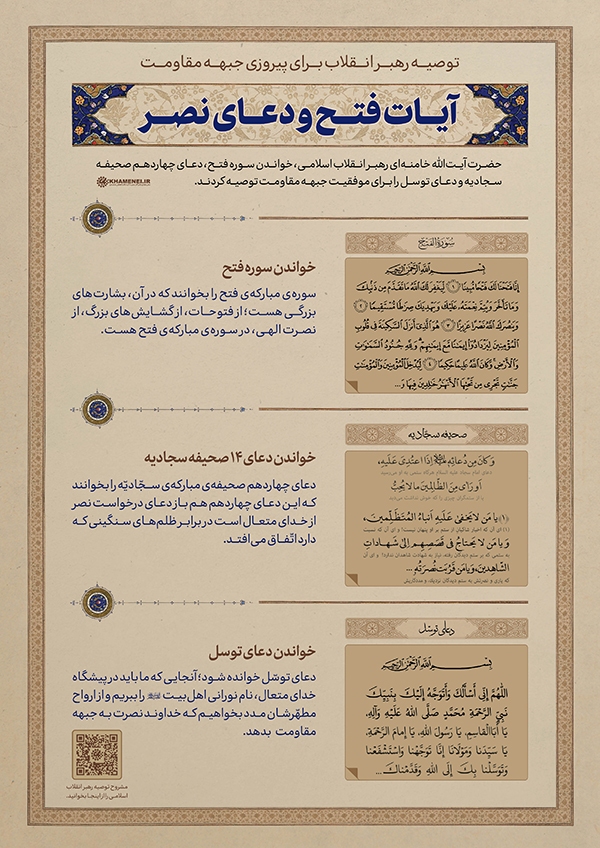 توصیه رهبر انقلاب برای پیروزی جبهه مقاومت
آیات فتح و دعای نصر
حضرت آیت‌الله خامنه‌ای رهبر انقلاب اسلامی، خواندن سوره فتح، دعای چهاردهم صحیفه
سجادیه و دعای توسل را برای موفقیت جبهه مقاومت توصیه کردند.
KHAMENEI.IR
سُورَةُ الفَتْح
بِسْمِ اللَّهِ الرَّحْمَٰنِ الرَّحِيمِ
إِنَّا فَتَحْنَا لَكَ فَتْحًا مُبِينًا ﴿١﴾ لِيَغْفِرَ لَكَ اللَّهُ مَا تَقَدَّمَ مِن ذَنْبِكَ
وَمَا تَأَخَّرَ وَيُتِمَّ نِعْمَتَهُ عَلَيْكَ وَيَهْدِيَكَ صِرَاطًا مُسْتَقِيمًا ﴿٢﴾
وَيَنْصُرَكَ اللَّهُ نَصْرًا عَزِيزًا ﴿٣﴾ هُوَ الَّذِي أَنْزَلَ السَّكِينَةَ فِي قُلُوبِ
الْمُؤْمِنِينَ لِيَزْدَادُوا إِيمَانًا مَعَ إِيمَانِهِمْ وَلِلَّهِ جُنُودُ السَّمَاوَاتِ
وَالْأَرْضِ وَكَانَ اللَّهُ عَلِيمًا حَكِيمًا ﴿٤﴾ لِيُدْخِلَ الْمُؤْمِنِينَ وَالْمُؤْمِنَاتِ
جَنَّاتٍ تَجْرِي مِن تَحْتِهَا الْأَنْهَارُ خَالِدِينَ فِيهَا وَ...
خواندن سوره فتح
سوره‌ی مبارکه‌ی فتح را بخوانند که در آن، بشارت‌های
بزرگی هست؛ از فتوحات، از گشایش‌های بزرگ، از
نصرت الهی، در سوره‌ی مبارکه‌ی فتح هست.
صحیفه سجادیه
وَ كَانَ مِنْ دُعَائِهِ إِذَا اعْتُدِيَ عَلَيْهِ،
أَوْ رَأَى مِنَ الظَّالِمِينَ مَا لَا يُحِبُّ
(۱) يَا مَن لَا يَخْفَى عَلَيْهِ أَنبَاءُ المُتَظَلِّمِينَ،
وَ يَا مَنْ لَا يَحْتَاجُ فِي قَصَصِهِمْ إِلَى شَهَادَاتِ
الشَّاهِدِينَ، وَ يَا مَنْ قَرُبَتْ نُصْرَتُهُ ...
خواندن دعای ۱۴ صحیفه سجادیه
دعای چهاردهم صحیفه‌ی مبارکه‌ی سجّادیّه را بخوانند
که این دعای چهاردهم هم باز دعای درخواست نصر
از خدای متعال است در برابر ظلم‌های سنگینی که
دارد اتّفاق می‌افتد.
دعای توسل
بِسْمِ اللَّهِ الرَّحْمَٰنِ الرَّحِيمِ
اللَّهُمَّ إِنِّي أَسْأَلُكَ وَأَتَوَجَّهُ إِلَيْكَ بِنَبِيِّكَ
نَبِيِّ الرَّحْمَةِ مُحَمَّدٍ صَلَّى اللَّهُ عَلَيْهِ وَآلِهِ.
يَا أَبَا الْقَاسِمِ، يَا رَسُولَ اللَّهِ، يَا إِمَامَ الرَّحْمَةِ،
يَا سَيِّدَنَا وَمَوْلَانَا إِنَّا تَوَجَّهْنَا وَاسْتَشْفَعْنَا
وَتَوَسَّلْنَا بِكَ إِلَى اللَّهِ وَقَدَّمْنَاكَ ...
خواندن دعای توسل
دعای توسّل خوانده شود؛ آنجایی که ما باید در پیشگاه
خدای متعال، نام نورانی اهل‌بیت را ببریم و از ارواح
مطهّرشان مدد بخواهیم که خداوند نصرت به جبهه
مقاومت بدهد.
مشروح توصیه رهبر انقلاب
اسلامی را از اینجا بخوانید.